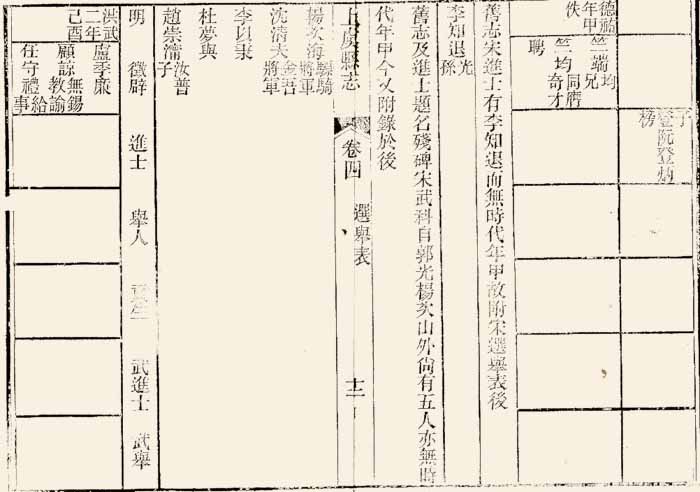 德祐
年甲
佚
竺端均
兄
竺均同膺
奇才
聘
子
登阮登炳
榜
舊志宋進士有李知退而無時代年甲故附宋選舉表後
李知退光
孫
舊志及進士題名殘碑宋武科自郭光楊次山外尚有五人亦無時
代年甲今又附錄於後
上虞縣志
卷四
選舉表
十二
楊次海驃騎
將軍
沈清夫金吾
將軍
李以秉
杜夢與
趙崇濡汝普
子
明
徵辟
進士
舉人
武進士
武舉
洪武
二年
己酉
盧季廉
顧諒無錫
教諭
任守禮給
事